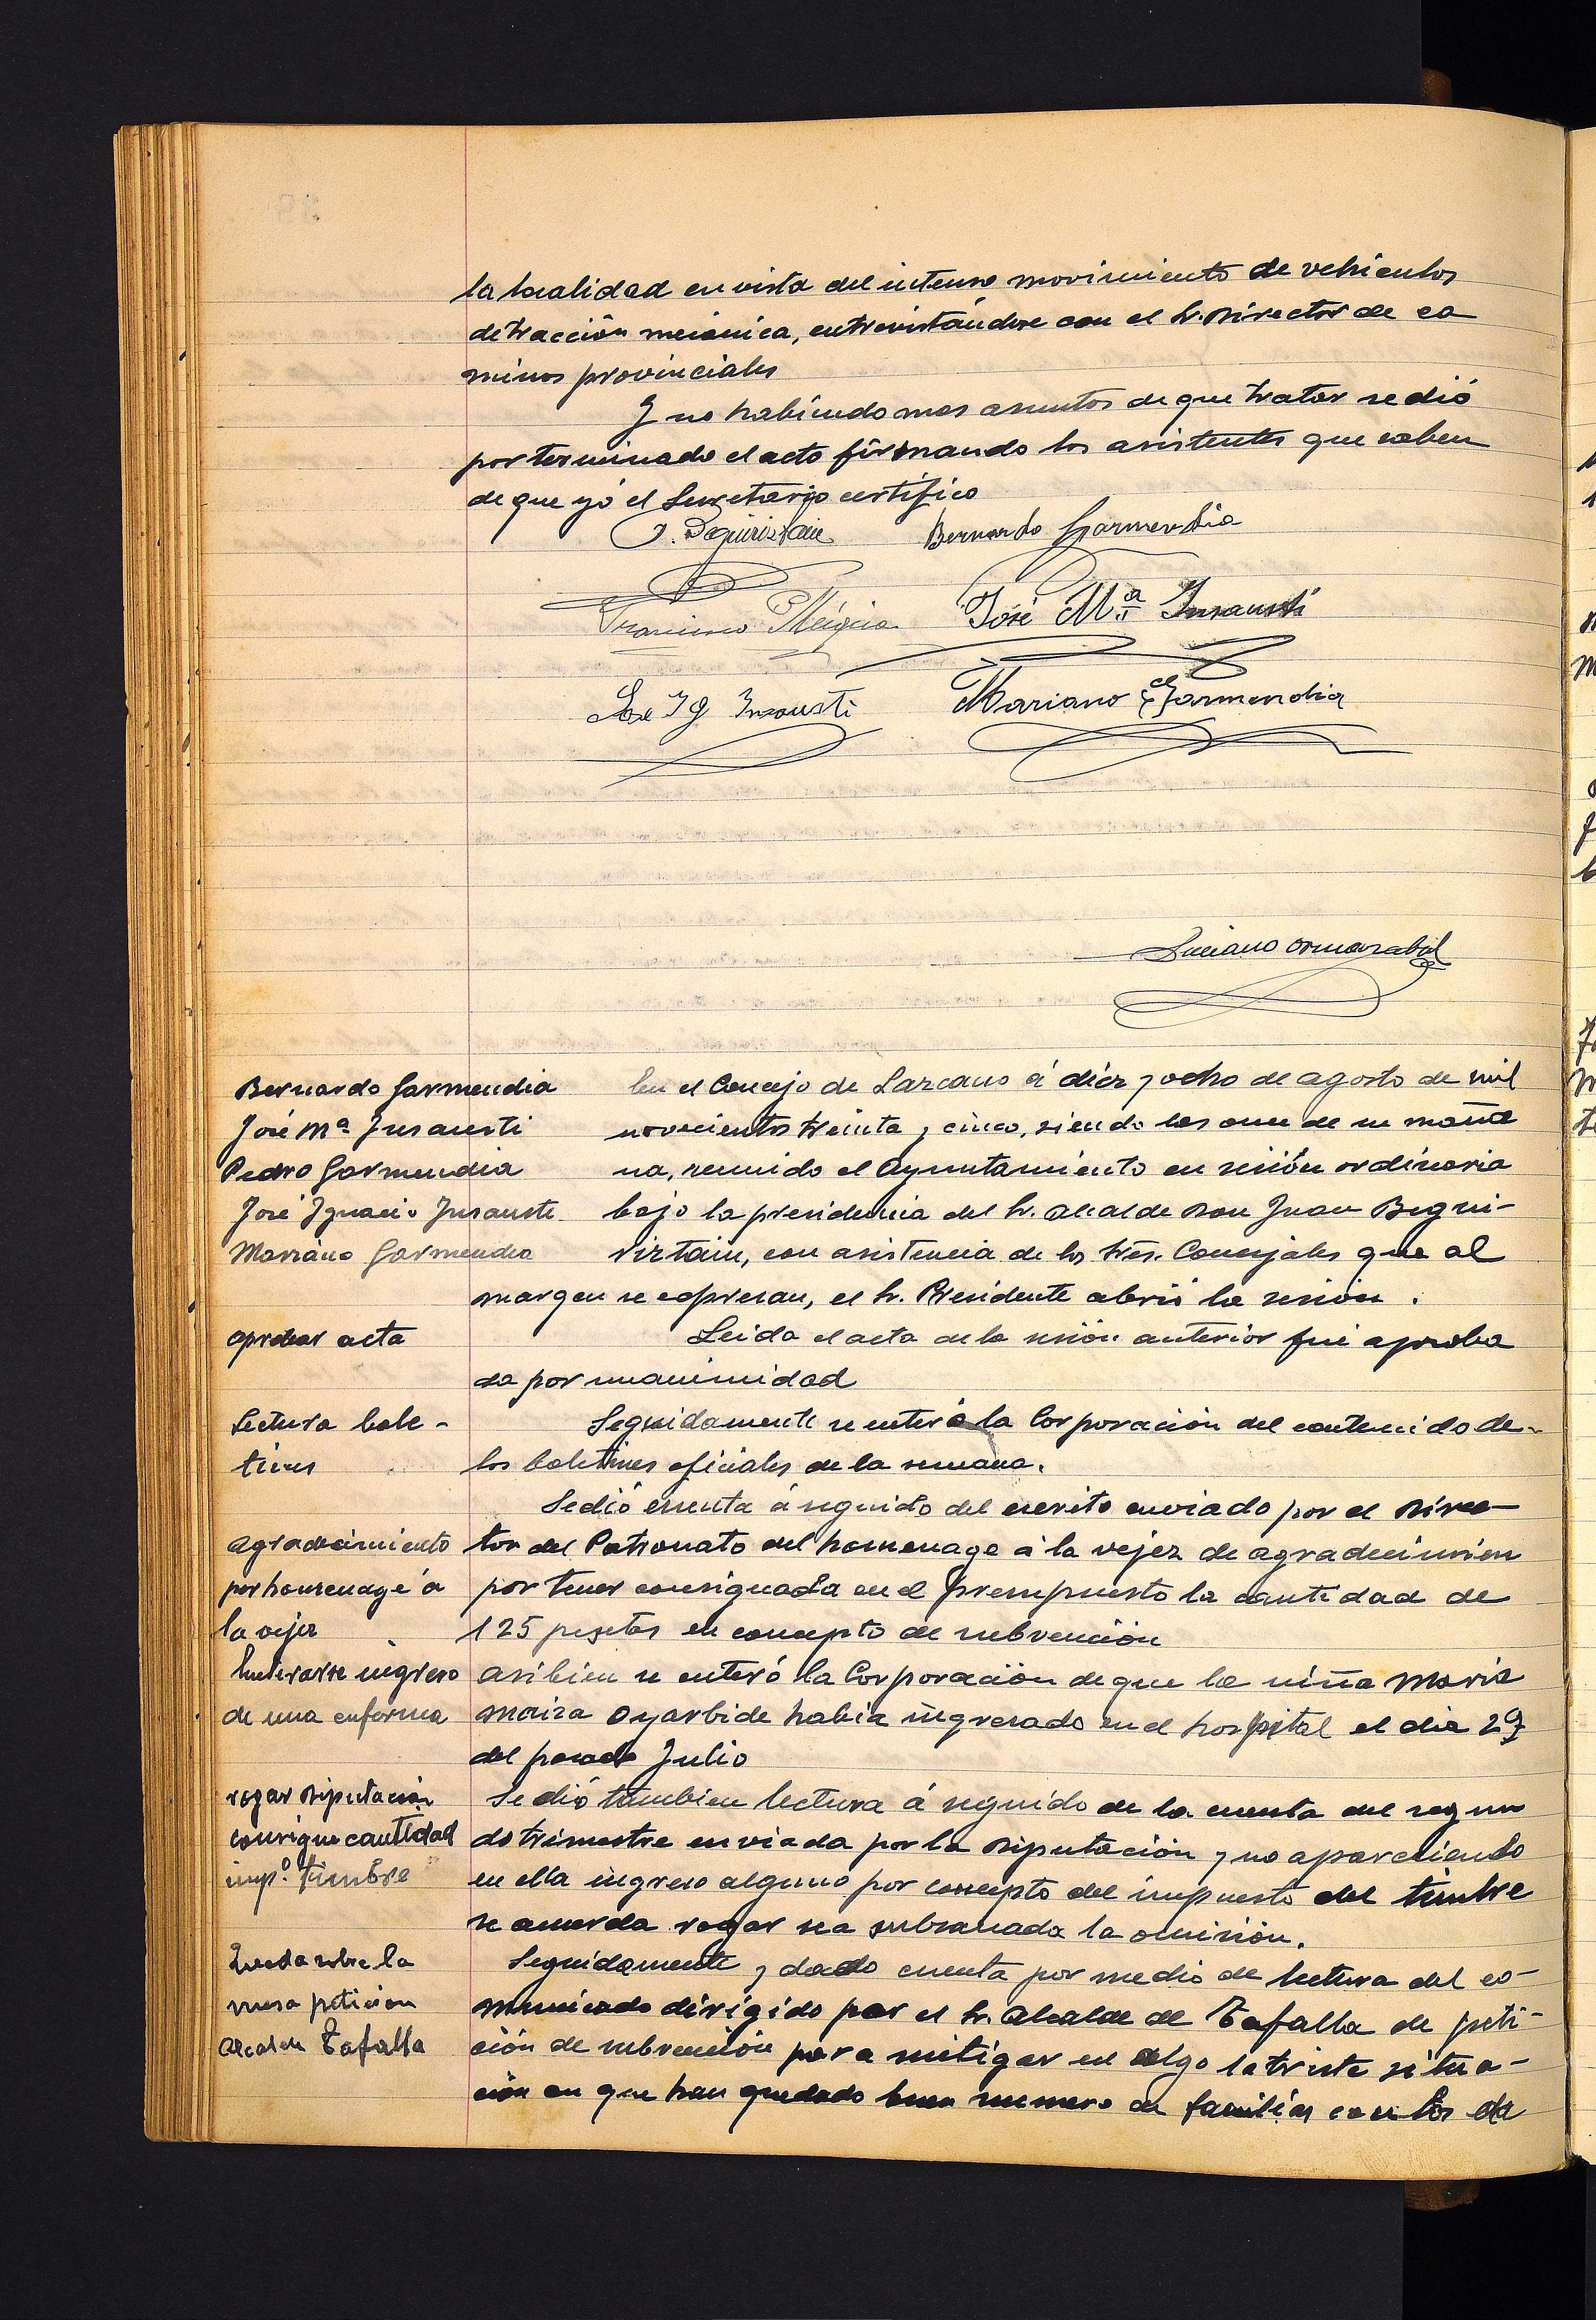 la localidad en vista del intenso movimiento de vehiculos
de tracción mecánica, entrevistándose con el Sr. Director de ca
minos provinciales
Y no habiendo mas asuntos de que tratar se dió
por terminado el acto firmando los asistentes que saben
de que yó el Secretario certifico
J. Beguiristain Bernardo Garmendia
Francisco José Mª Insausti
José Ig Insausti Mariano Garmendia
Luciano Ormazabal
Bernardo Garmendia
José Mª Insausti
Pedro Garmendia
José Ignacio Insausti
Mariano Garmendia
En el Concejo de Lazcano á diez y ocho de agosto de mil
novecientos treinta y cinco, siendo las once de su maña
na, reunido el Ayuntamiento en sesión ordinaria
bajo la presidencia del Sr. Alcalde Don Juan Begui-
ristain, con asistencia de los Sres. Concejales que al
margen se expresan, el Sr. Presidente abrió la sesión.
aprobar acta
Leida el acta de la sesión anterior fué aproba
da por unanimidad
Lectura bole-
tines
Seguidamente se enteró la Corporación del contenido de
los boletines oficiales de la semana.
Se dió cuenta á seguido del escrito enviado por el Direc-
agradecimiento
por homenage á
la vejez
tor del Patronato del homenage á la vejez de agradecimien
por tener consignada en el presupuesto la cantidad de
125 pesetas en concepto de subvención
Enterarse ingreso
de una enferma
asi bien se enteró la Corporación de que la niña Maria
Maiza Oyarbide habia ingresado en el hospital el dia 29
del pasado Julio
rogar Diputación
consigne cantidad
imp.º timbre
Se dió tambien lectura á seguido de la cuenta del segun
do trimestre enviada por la Diputación y no apareciendo
en ella ingreso alguno por concepto del impuesto del timbre
se acuerda rogar sea subsanada la omisión.
Queda sobre la
mesa peticion
Alcalde Tafalla
Seguidamente y dado cuenta por medio de lectura del co-
municado dirigido por el Sr. Alcalde de Tafalla de peti-
ción de subvención para mitigar en algo la triste situa-
ción en que han quedado buen numero de familias con los da